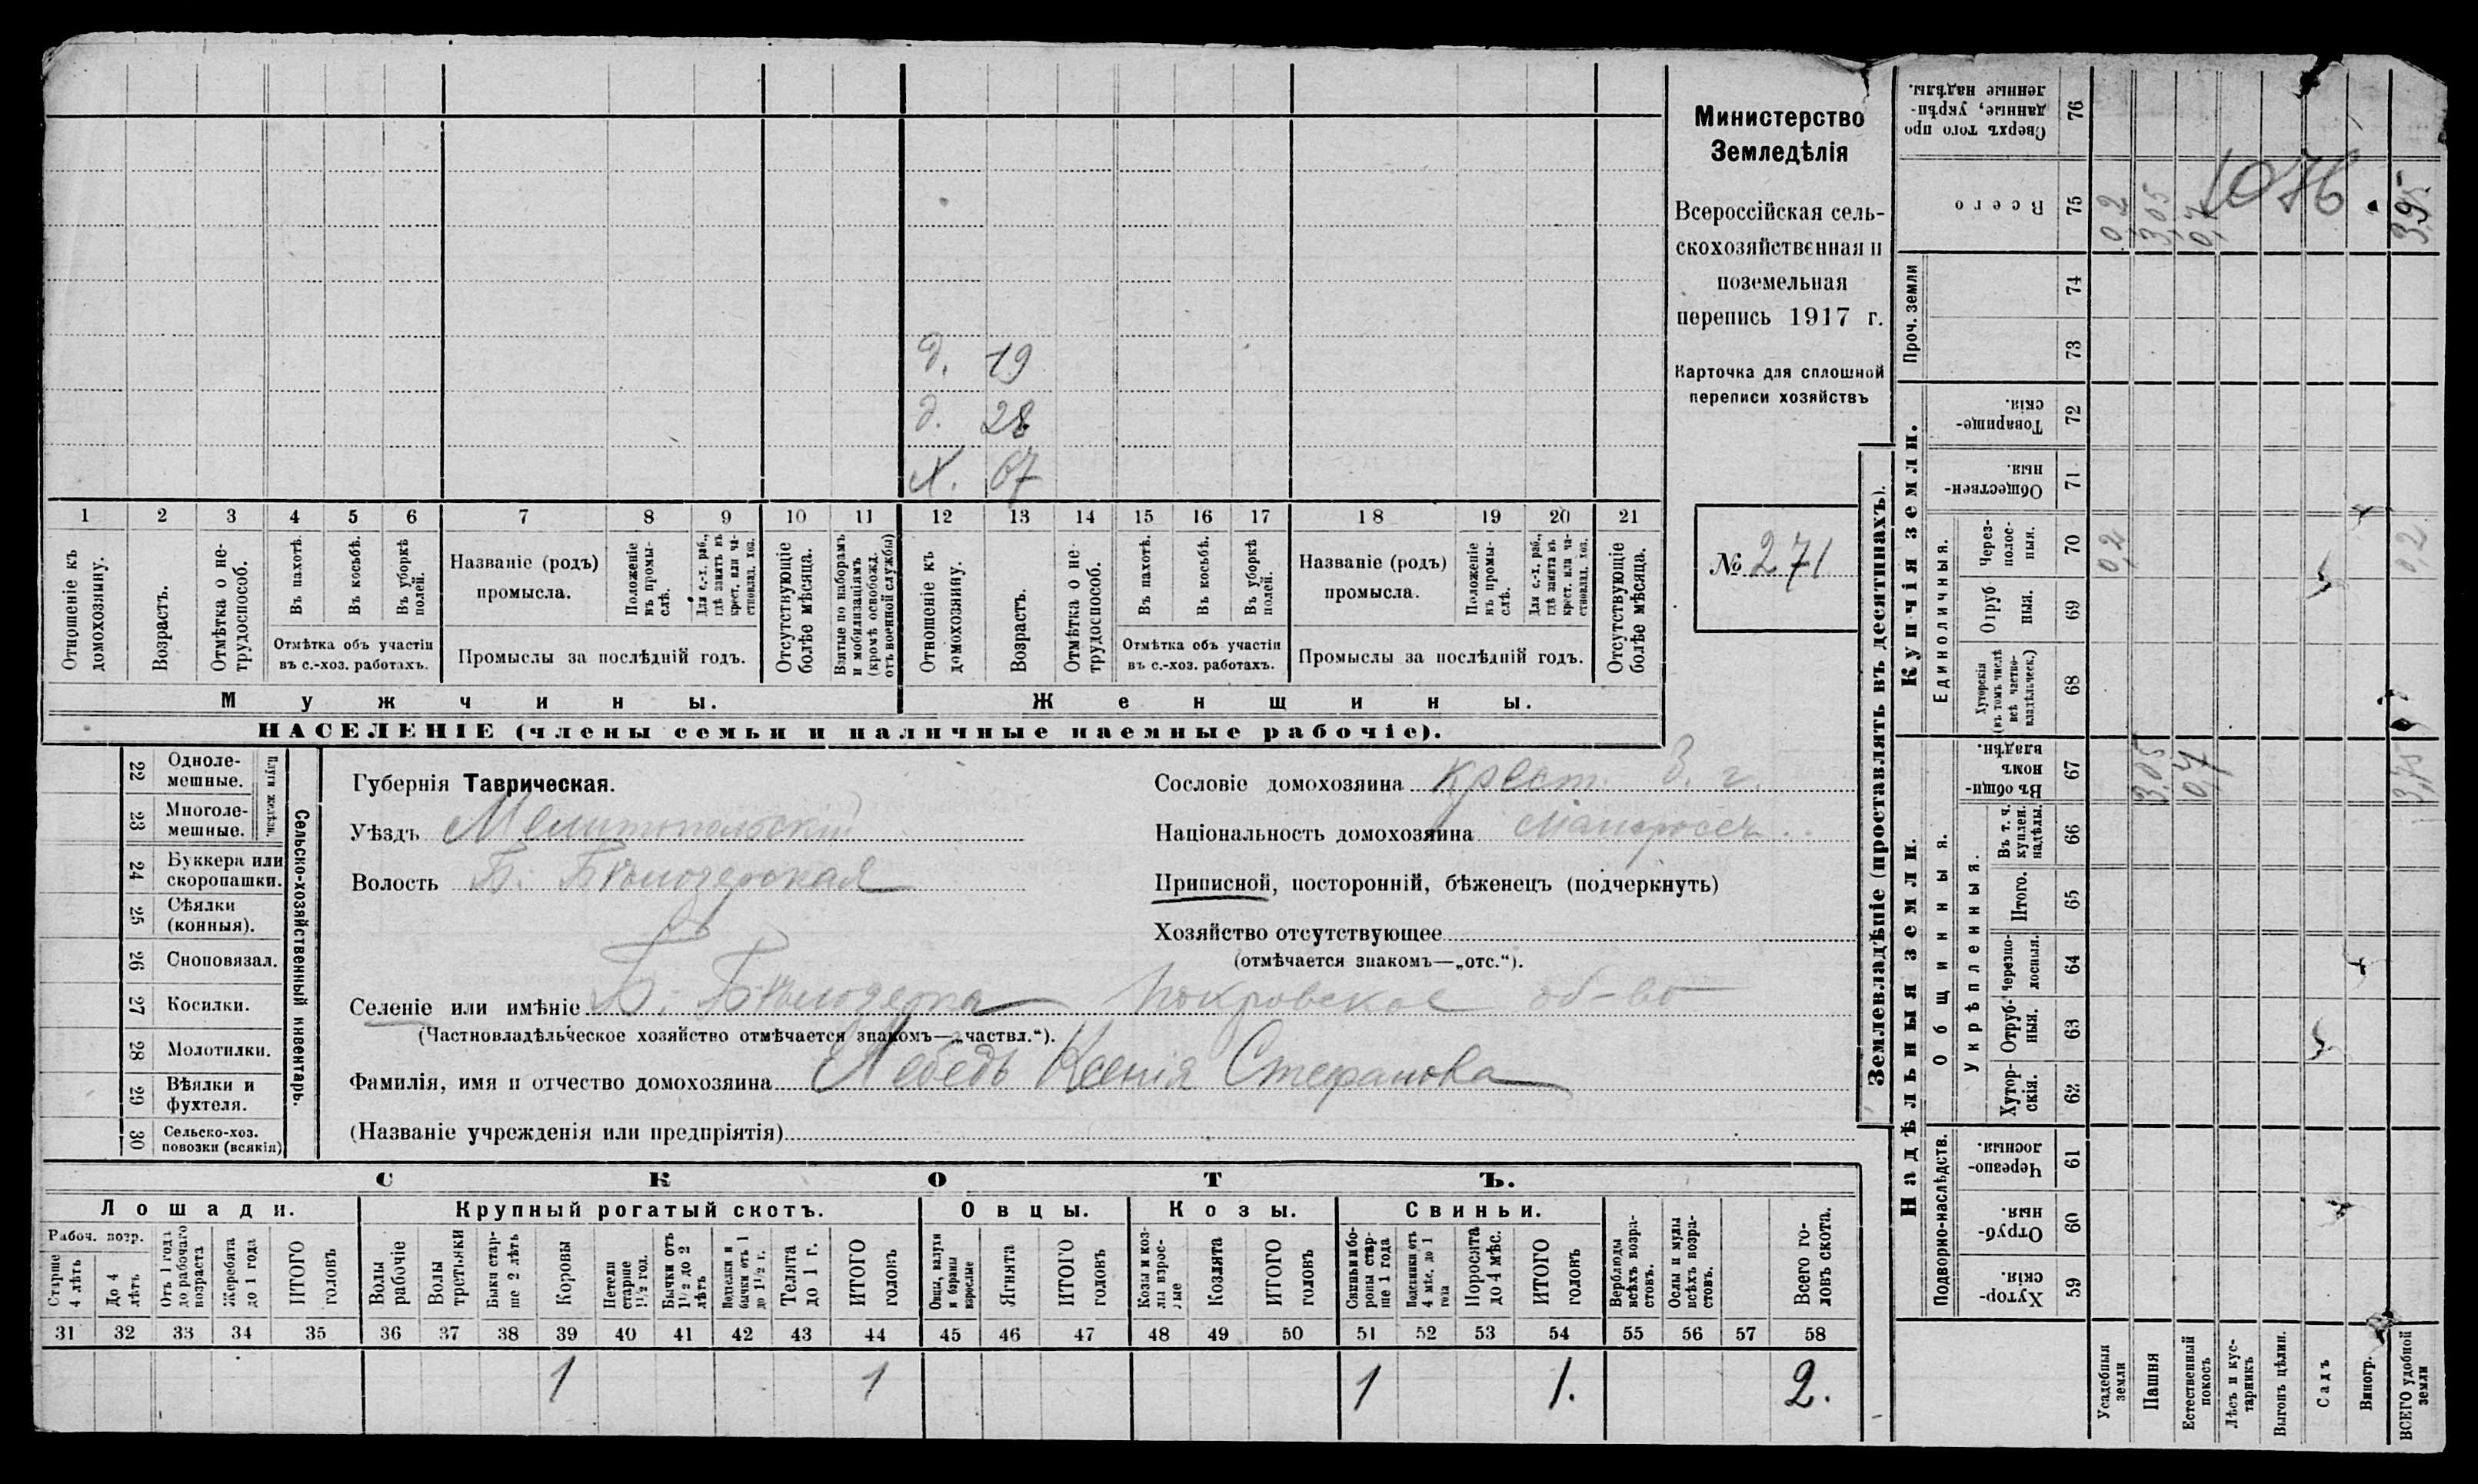 Министерство
Земледѣлія
Всероссійская сель-
скохозяйственная и
поземельная
перепись 1917 г.
Карточка для сплошной
переписи хозяйствъ
№ 271
д. 19
д. 28
Х. 67
1 2 3 4 5 6 7 8 9 10 11 12 13 14 15 16 17 18 19 20 21
Отношеніе къ домохозяину.
Возрастъ.
Отмѣтка о не-трудоспособ.
Въ пахотѣ.
Въ косьбѣ.
Въ уборкѣ полей.
Отмѣтка объ участіи въ с.-хоз. работахъ.
Названіе (родъ) промысла.
Положеніе въ промы-слѣ.
Для с.-х. раб., гдѣ занятъ въ крест. или ча-стновлад. хоз.
Промыслы за послѣдній годъ.
Отсутствующіе болѣе мѣсяца.
Взятые по наборамъ и мобилизаціямъ (кромѣ освобожд. отъ военной службы)
Отношеніе къ домохозяину.
Возрастъ.
Отмѣтка о не-трудоспособ.
Въ пахотѣ.
Въ косьбѣ.
Въ уборкѣ полей.
Отмѣтка объ участіи въ с.-хоз. работахъ.
Названіе (родъ) промысла.
Положеніе въ промы-слѣ.
Для с.-х. раб., гдѣ занята въ крест. или ча-стновлад. хоз.
Промыслы за послѣдній годъ.
Отсутствующіе болѣе мѣсяца.
Мужчины. Женщины.
НАСЕЛЕНІЕ (члены семьи и наличные наемные рабочіе).
22 Однолемешные.
23 Многолемешные.
Плуги желѣзн.
24 Буккера или скоропашки.
25 Сѣялки (конныя).
26 Сноповязал.
27 Косилки.
28 Молотилки.
29 Вѣялки и фухтеля.
30 Сельско-хоз. повозки (всякія)
Сельско-хозяйственный инвентарь.
Губернія Таврическая.
Уѣздъ Мелитопольскій
Волость Б. Бѣлозерская
Селеніе или имѣніе Б. Бѣлозерка Покровское об-во
(Частновладѣльческое хозяйство отмѣчается знакомъ—„частвл.“).
Фамилія, имя и отчество домохозяина Лебедь Ксенія Стефанова
(Названіе учрежденія или предпріятія)
Сословіе домохозяина крест.
Національность домохозяина малоросс.
Приписной, посторонній, бѣженецъ (подчеркнуть)
Хозяйство отсутствующее
(отмѣчается знакомъ—„отс.“).
СКОТЪ.
Лошади. Крупный рогатый скотъ. Овцы. Козы. Свиньи.
Рабоч. возр.
Старше 4 лѣтъ
До 4 лѣтъ
Отъ 1 года до рабочаго возраста
Жеребята до 1 года
ИТОГО головъ
Волы рабочіе
Волы третьяки
Быки стар-ше 2 лѣтъ
Коровы
Нетели старше 1½ год.
Бычки отъ 1½ до 2 лѣтъ
Подтелки и бычки отъ 1 до 1½ г.
Телята до 1 г.
ИТОГО головъ
Овцы, валухи и бараны взрослые
Ягнята
ИТОГО головъ
Козы и коз-лы взрос-лые
Козлята
ИТОГО головъ
Свиньи и бо-ровы стар-ше 1 года
Подсвинки отъ 4 мѣс. до 1 года
Поросята до 4 мѣс.
ИТОГО головъ
Верблюды всѣхъ возра-стовъ.
Ослы и мулы всѣхъ возра-стовъ.
Всего го-ловъ скота.
31 32 33 34 35 36 37 38 39 40 41 42 43 44 45 46 47 48 49 50 51 52 53 54 55 56 57 58
1 1 1 1. 2.
Землевладѣніе (проставлять въ десятинахъ).
Надѣльныя земли. Купчія земли. Проч. земли
Подворно-наслѣдств. Общинныя. Единоличныя.
Укрѣпленныя.
Хутор-скія. 59
Отруб-ныя. 60
Черезпо-лосныя. 61
Хутор-скія. 62
Отруб-ныя. 63
Черезпо-лосныя. 64
Итого. 65
Въ т. ч. куплен. надѣлы. 66
Въ общи-номъ владѣн. 67
Хуторскія (въ томъ числѣ всѣ частно-владѣльческ.) 68
Отруб-ныя. 69
Через-полос-ныя. 70
Обществен-ныя. 71
Товарище-скія. 72
73
74
Всего 75
Сверхъ того про-данные, укрѣп-ленные надѣлы. 76
Усадебныя земли 0,2 0,2
Пашня 3,05 3,05
Естественный покосъ 0,7 0,7
Лѣсъ и кус-тарникъ
Выгонъ цѣлин.
Садъ
Виногр.
ВСЕГО удобной земли 3,75 0,2 3,95
1076.